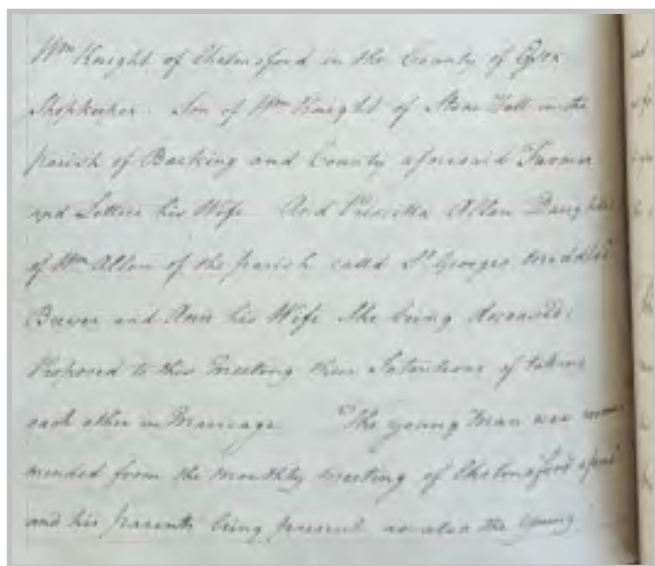 Wm Knight of Chelmsford in the County of Essex
Shopkeeper. Son of Wm Knight of Stone Hall in the
parish of Barking and County aforesaid Farmer
and Lettice his Wife And Priscilla Allen Daughter
of Wm Allen of the parish called St Georges Middlsx
Brewer and Ann his Wife She being deceased;
Proposed to this Meeting their Intentions of taking
each other in Marriage The young Man was recom=
mended from the monthly meeting of Chelmsford
and his parents being present as also the young